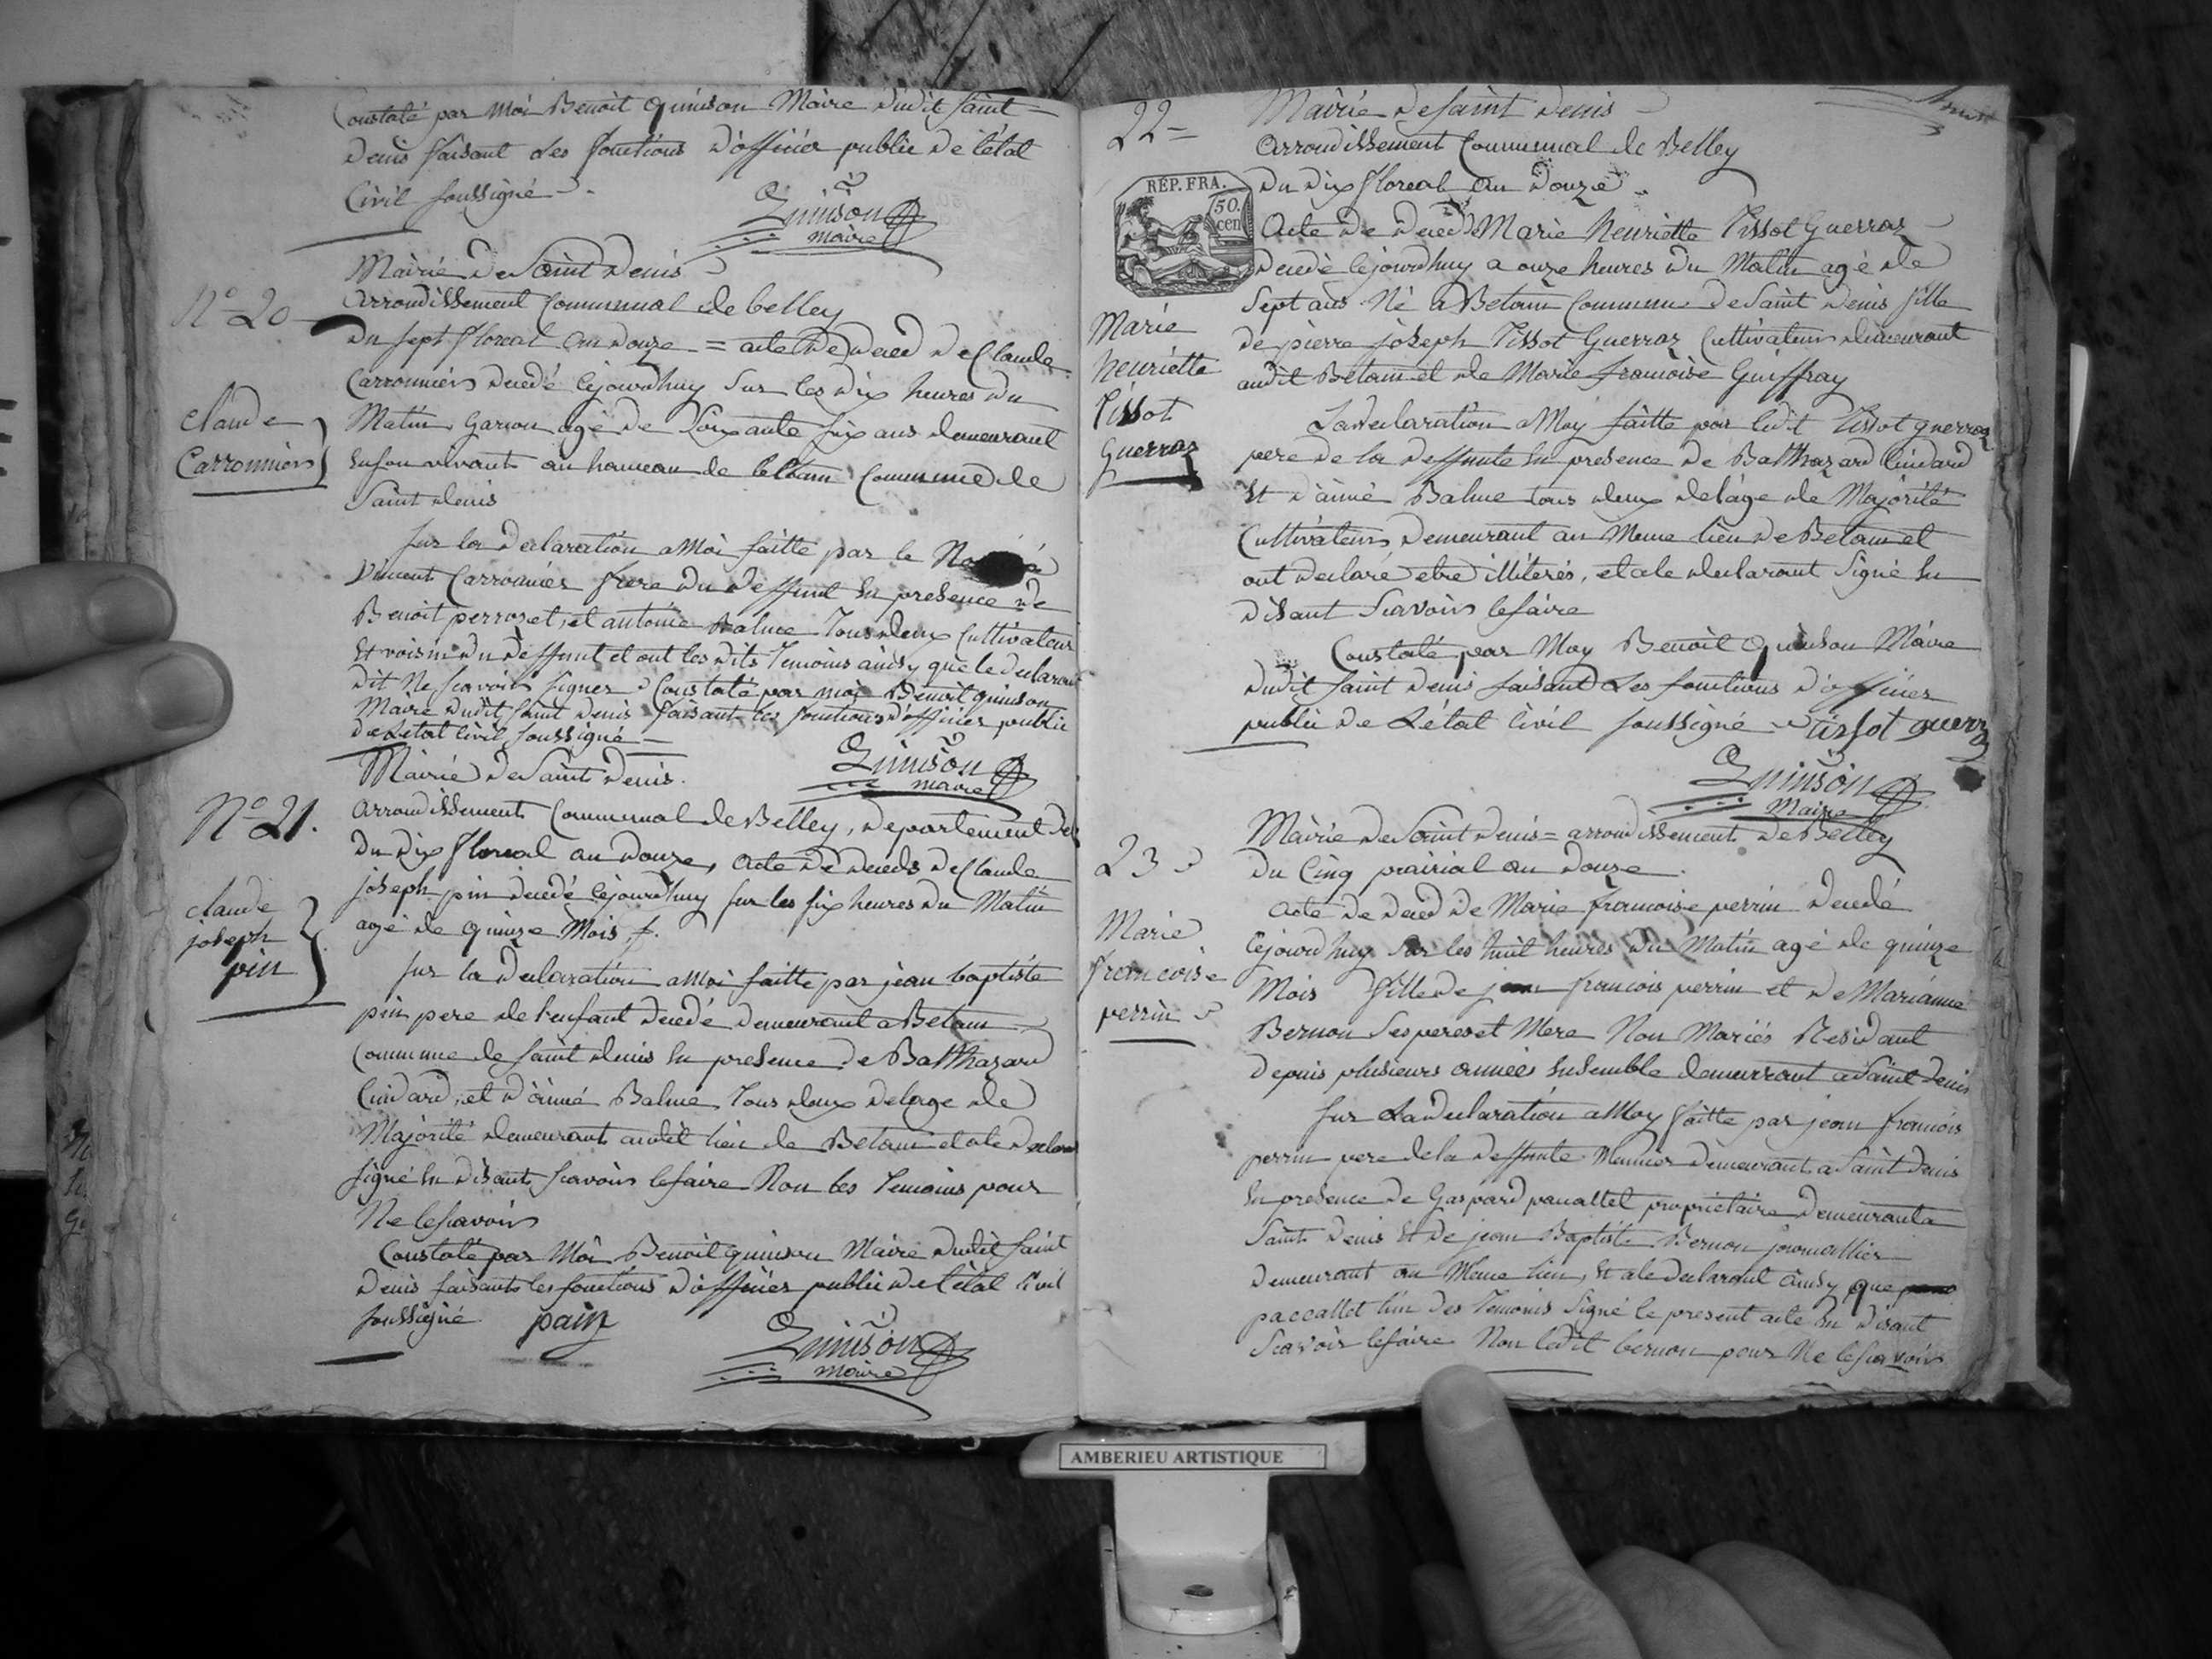 Constaté par Moi Benoit quinson Maire dudit saint
denis faisant les fonctions d'officier public de l'état
Civil soussigné
Quinson
maire
Mairie de Saint denis
N° 20
arrondissement Communal de belley
du sept floreal an douze = acte de deced de Claude
Carronnier decedé cejourdhuy sur les dix heures du
Claude
Carronnier
Matin Garcon agé de soixante six ans demeurant
en son vivant au hameau de bettan Commune de
Saint denis
sur la declaration a Moi faitte par le
vincent Carronnier frere du deffunt en presence de
Benoit perrozet, et antoine Balme tous deux Cultivateur
et voisin du deffunt et ont les dits temoins ainsy que le declarant
dit Ne scavoir signer Constaté par moi Benoit quinson
Maire dudit saint denis faisant les fonctions d'officier public
de Letat Civil soussigné
Quinson
maire
Mairie de Saint denis
N° 21.
arrondissement Communal de Belley, departement de
du dix floreal an douze, acte de deceds de Claude
joseph pin decedé cejourdhuy sur les six heures du Matin
claude
joseph
pin
agé de quinze Mois
sur la declaration a Moi faitte par jean baptiste
pin pere de l'enfant decedé demeurant a Betam
Commune de saint denis en presence de Balthazard
Cindard, et d'aimé Balme tous deux de lage de
Majorité demeurant audit lieu de Betam et a le declarant
signé en disant scavoir le faire Non les temoins pour
Ne le scavoir
Constaté par Moi Benoit quinson Maire dudit saint
denis faisant les fonctions d'officier public de l'état Civil
soussigné pain
Quinson
maire
22 =
Mairie de saint denis
arrondissement Communal de Belley
du dix floreal an douze
RÉP. FRA.
50.
cen
Acte de deced Marie henriette Tissot Guerraz
decedé cejourdhuy a onze heures du Matin agé de
sept ans Né a Betam Commune de Saint denis fille
Marie
henriette
Tissot
Guerraz
de pierre joseph Tissot Guerraz Cultivateur demeurant
audit Betam et de Marie francoise Guiffray
La declaration a Moy faitte par ledit Tissot guerraz
pere de la deffunte en presence de Balthazard Cindard
et d'aimé Balme tous deux de lage de Majorité
Cultivateurs demeurant au Meme lieu de Betam et
ont declaré etre illiterés, et a le declarant Signé en
disant scavoir le faire
Constaté par Moy Benoit Quinson Maire
dudit saint denis faisant Les fonctions d'officier
public de L'état Civil soussigné tissot guerraz
Quinson
Maire
Mairie de Saint denis = arrondissement de Belley
23
du Cinq prairial an douze
acte de deced de Marie francoise perrin decedé
Marie
francoise
perrin
cejourdhuy sur les huit heures du Matin agé de quinze
Mois fille de jean francois perrin et de Marianne
Bernon ses peres et Mere Non Mariés Residant
depuis plusieurs années ensemble demeurant a Saint denis
sur La declaration a Moy faitte par jean francois
perrin pere de la deffunte Meunier demeurant a Saint denis
en presence de Gaspard paccallet proprietaire demeurant a
Saint denis et de jean Baptiste Bernon journallier
demeurant au Meme lieu, et a le declarant ainsy que
paccallet l'un des temoins Signé le present acte en disant
scavoir le faire Non ledit bernon pour Ne le scavoir
AMBERIEU ARTISTIQUE